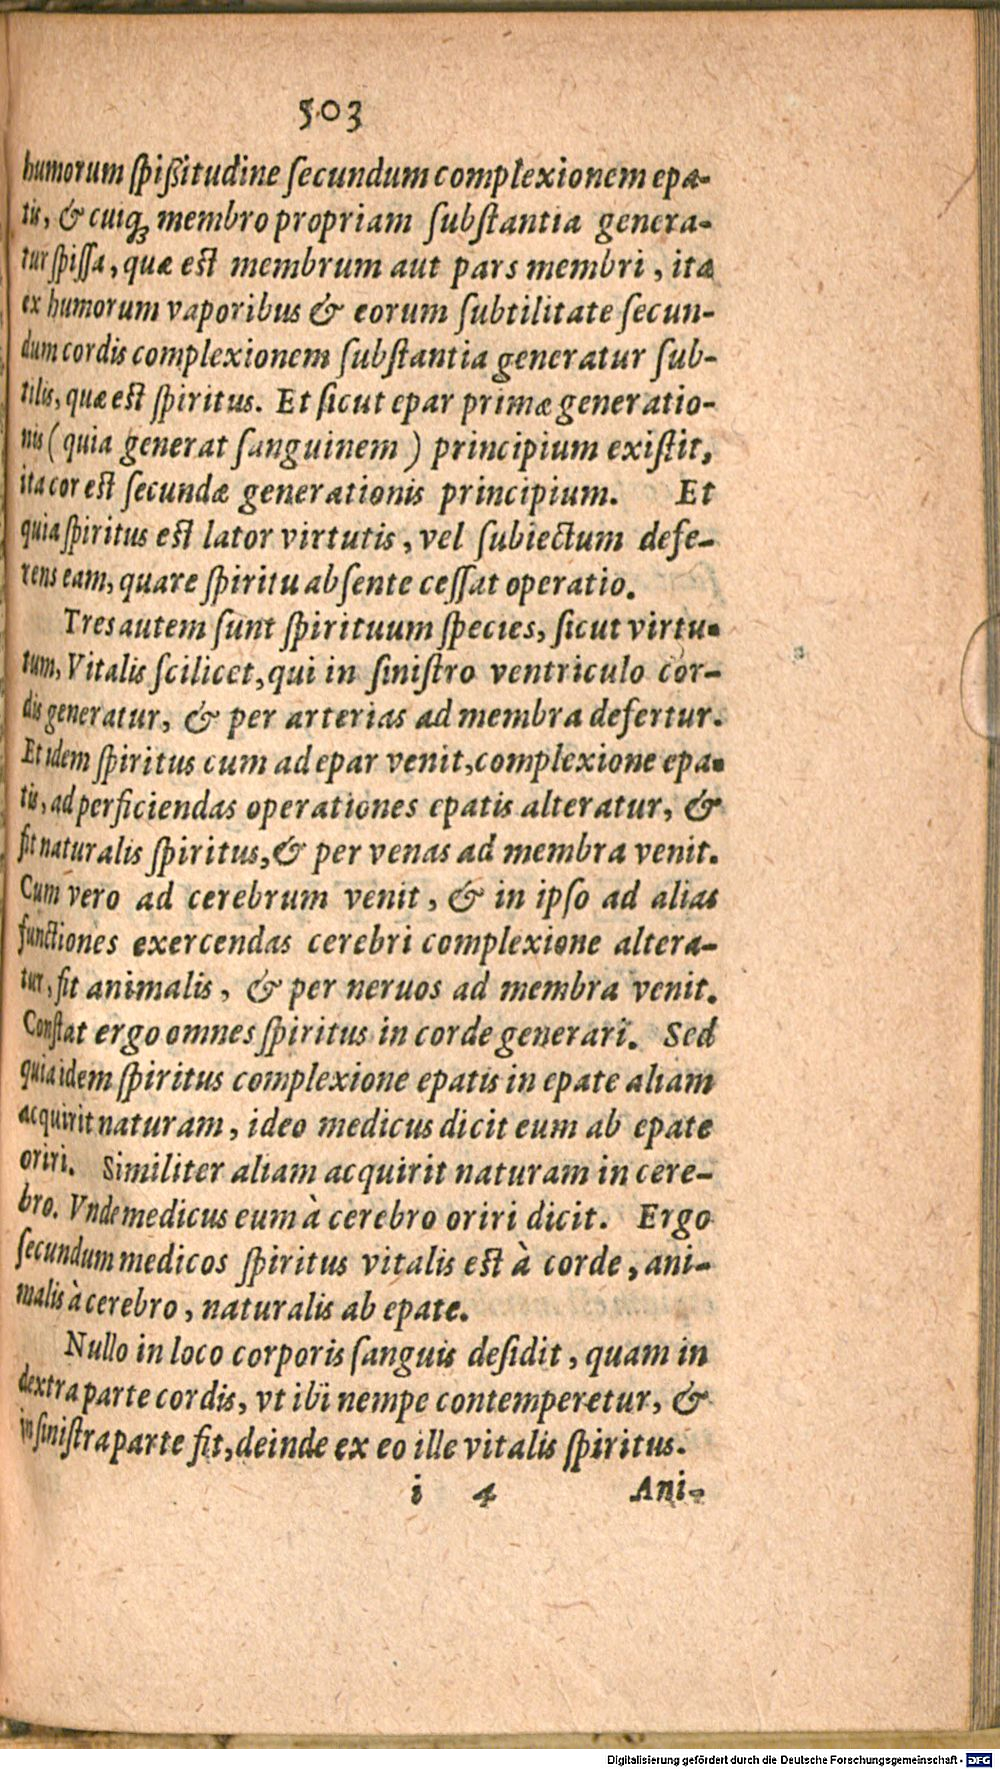 503
humorum ſpiſsitudine ſecundum complexionem epa-
tis, & cuiqȝ membro propriam ſubſtantia genera-
tur ſpiſſa, quæ est membrum aut pars membri, ita
ex humorum vaporibus & eorum ſubtilitate ſecun-
dum cordis complexionem ſubſtantia generatur ſub-
tilis, quæ est ſpiritus. Et ſicut epar primæ generatio-
nis (quia generat ſanguinem) principium exiſtit,
ita cor est ſecundæ generationis principium. Et
quia ſpiritus est lator virtutis, vel ſubiectum defe-
rens eam, quare ſpiritu abſente ceſſat operatio.
Tres autem ſunt ſpirituum ſpecies, ſicut virtu-
tum, Vitalis ſcilicet, qui in ſiniſtro ventriculo cor-
dis generatur, & per arterias ad membra defertur.
Et idem ſpiritus cum ad epar venit, complexione epa-
tis, ad perficiendas operationes epatis alteratur, &
fit naturalis ſpiritus, & per venas ad membra venit.
Cum vero ad cerebrum venit, & in ipſo ad alias
functiones exercendas cerebri complexione altera-
tur, fit animalis, & per neruos ad membra venit.
Conſtat ergo omnes ſpiritus in corde generari. Sed
quia idem ſpiritus complexione epatis in epate aliam
acquirit naturam, ideo medicus dicit eum ab epate
oriri. Similiter aliam acquirit naturam in cere-
bro. Vnde medicus eum à cerebro oriri dicit. Ergo
ſecundum medicos ſpiritus vitalis est à corde, ani-
malis à cerebro, naturalis ab epate.
Nullo in loco corporis ſanguis deſidit, quam in
dextra parte cordis, vt ibi nempe contemperetur, &
in ſiniſtra parte fit, deinde ex eo ille vitalis ſpiritus.
i 4 Ani-
Digitalisierung gefördert durch die Deutsche Forschungsgemeinschaft - DFG